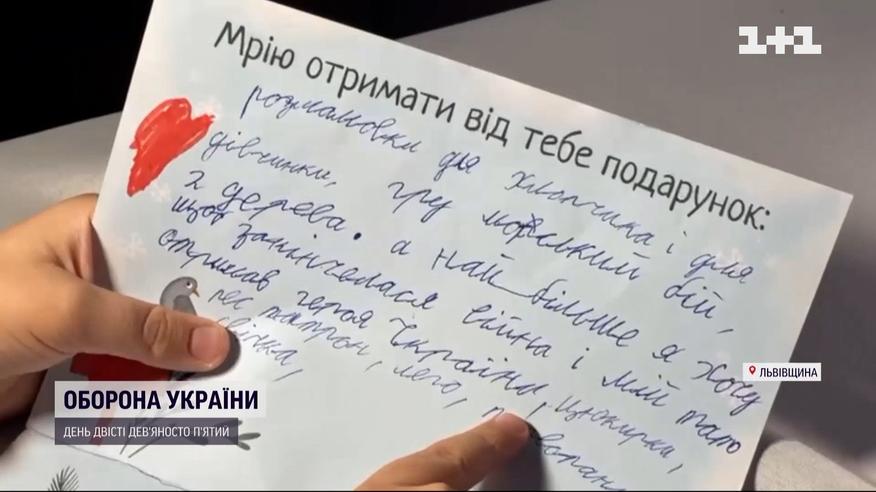 1+1
Мрію отримати від тебе подарунок:
розмальовки для хлопчика і для
дівчинки, гру морський бій,
з дерева. а най більше я хочу
щоб закінчелася війна і мій тато
отримав героя України, цюкирки,
пес патрон, лего,
свічка,
ЛЬВІВЩИНА
ОБОРОНА УКРАЇНИ
ДЕНЬ ДВІСТІ ДЕВ'ЯНОСТО П'ЯТИЙ